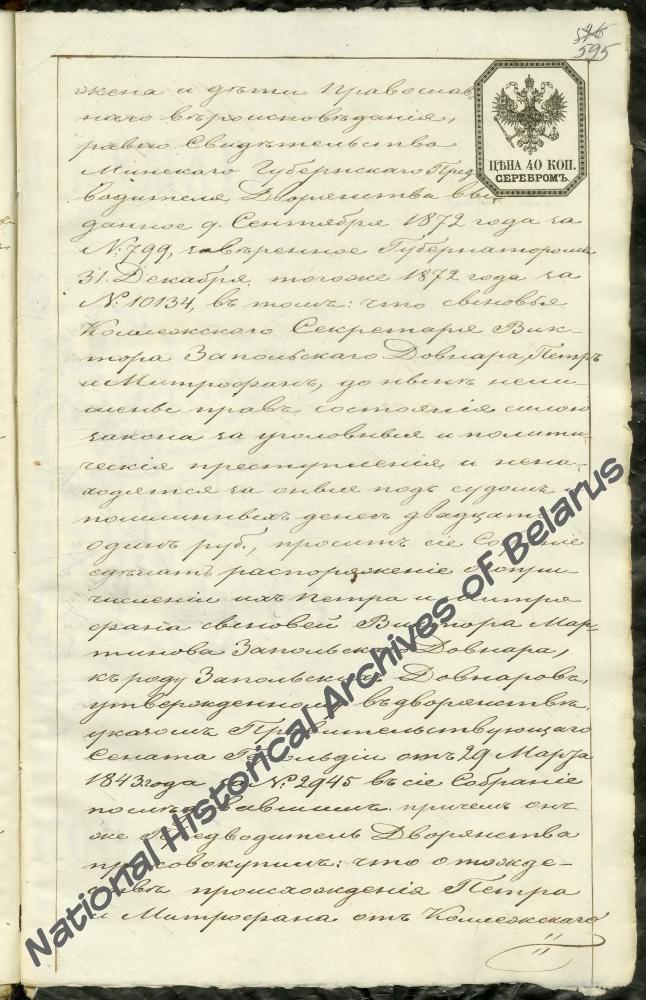 595
ЦѢНА 40 КОП.
СЕРЕБРОМЪ.
жена и дѣти Православ
наго вѣроисповѣданія,
равно Свидѣтельство
Минскаго Губернскаго Пред
водителя Дворянства вы
данное 9. Сентября 1872 года за
№ 799, завѣренное Губернаторомъ
31. Декабря тогоже 1872 года за
№ 10134, въ томъ: что сыновья
Коллежскаго Секретаря Вик-
тора Запольскаго Довнара, Петръ
и Митрофанъ, до нынѣ нели-
шены правъ состоянія силою
закона за уголовныя и полити-
ческія преступленія, и нена-
ходятся за оныя подъ судомъ, и
пошлинныхъ денегъ двадцать
одинъ руб., проситъ сіе Собраніе
сдѣлать распоряженіе о при
численіи ихъ Петра и Митро
фана сыновей Виктора Мар-
тинова Запольскаго Довнара,
къ роду Запольскихъ Довнаровъ,
утвержденному въ дворянствѣ
указомъ Правительствующаго
Сената Герольдіи отъ 29 Марта
1843 года за № 2945 въ сіе Собраніе
причемъ онъ
же Предводитель Дворянства
присовокупилъ: что о тожде-
ствѣ происхожденія Петра
и Митрофана отъ Коллежскаго
National Historical Archives of Belarus